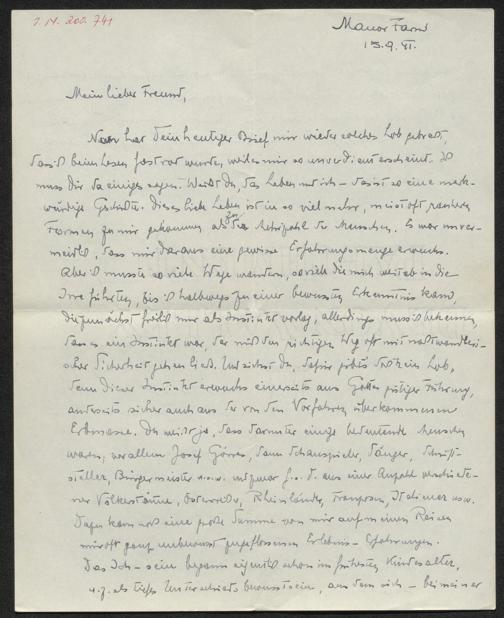 I.N. 200.741
Manor Farm
15.9.41.
Mein lieber Freund,
Nun hat Dein heutiger Brief mir wieder solches Lob gebracht,
dass ich beim Lesen fast rot wurde, weil es mir so unverdient erscheint. Ich
muss Dir da einiges sagen. Weisst Du, das Leben und ich – das ist so eine merk-
würdige Geschichte. Dieses liebe Leben ist in so viel mehr, meist oft
Formen zu mir gekommen als zu der Mehrzahl der Menschen. Es war unver-
meidlich, dass mir daraus eine gewisse Erfahrungsmenge erwuchs.
Aber ich musste so viele Wege wandern, so viele die mich weitab in die
Irre führten, bis ich halbwegs zu einer bewussten Erkenntnis kam,
die zunächst freilich nur als Instinkt vorlag, allerdings muss ich bekennen,
dass es ein Instinkt war, der mich den richtigen Weg oft mit nachtwandleri-
scher Sicherheit gehen liess. Und siehst Du, dafür gibts doch kein Lob,
denn dieser Instinkt erwuchs einerseits aus Gottes gütiger Führung,
anderseits sicher auch aus der von den Vorfahren überkommenen
Erbmasse. Du weisst ja, dass darunter einige bedeutende Menschen
waren, vor allem Josef Görres, dann Schauspieler, Sänger, Schrift-
steller, Bürgermeister u.s.w. und zwar z. T. aus einer Anzahl verschiede-
ner Volksstämme, Österreicher, Rheinländer, Franzosen, Italiener usw.
Dazu kam noch eine große Summe von mir auf meinen Reisen
mir oft ganz unbewusst zugeflossenen Erlebnis-Erfahrungen.
Das Ich-sein begann eigentlich schon im frühesten Kindesalter,
u.z. als tiefes Unterschiedsbewusstsein, aus dem ich – bei meiner